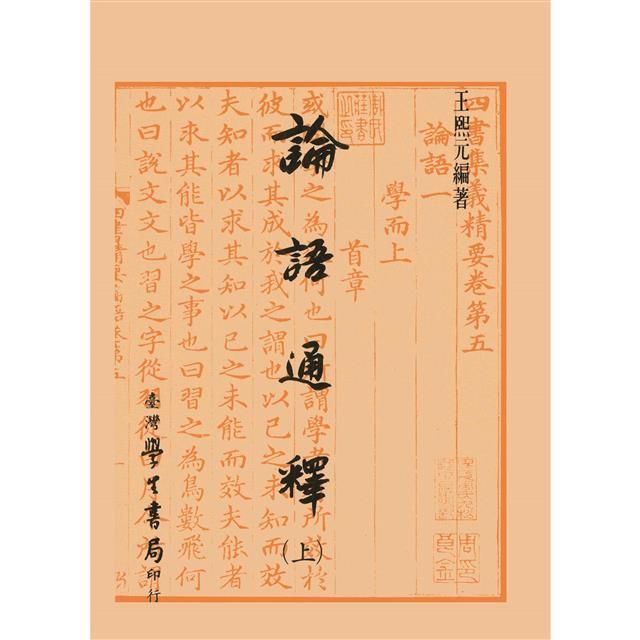 四書集義精要卷第五
王熙元編著
論語一
學而上
首章
論語通釋
(上)
彼而求其成於我之謂也以己之未知而效
夫知者以求其知以己之未能而效夫能者
以求其能皆學之事也曰習之為鳥數飛何
也曰說文文也習之字從
臺灣學生書局印行